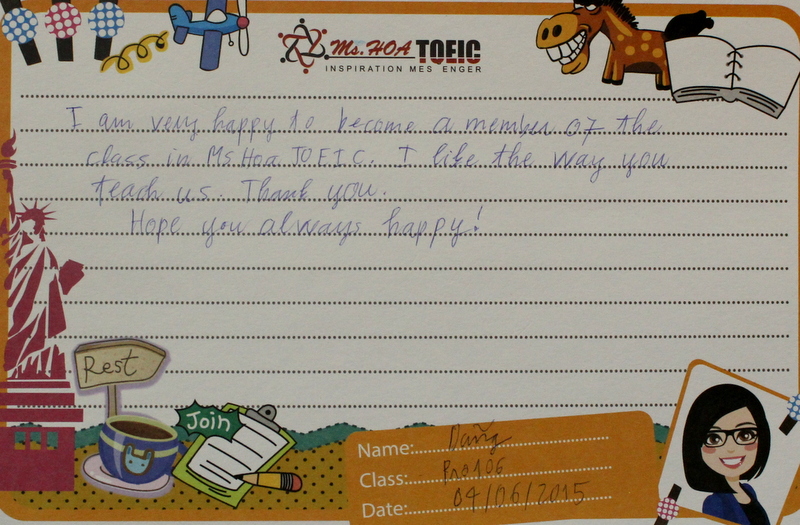 Ms. HOA TOEIC
INSPIRATION MES ENGER
I am very happy to become a member of the
class in Ms Hoa TOEIC. I like the way you
teach us. Thank you.
Hope you always happy!
Rest
Join
Name:
Class: Pre106
Date: 04/06/2015